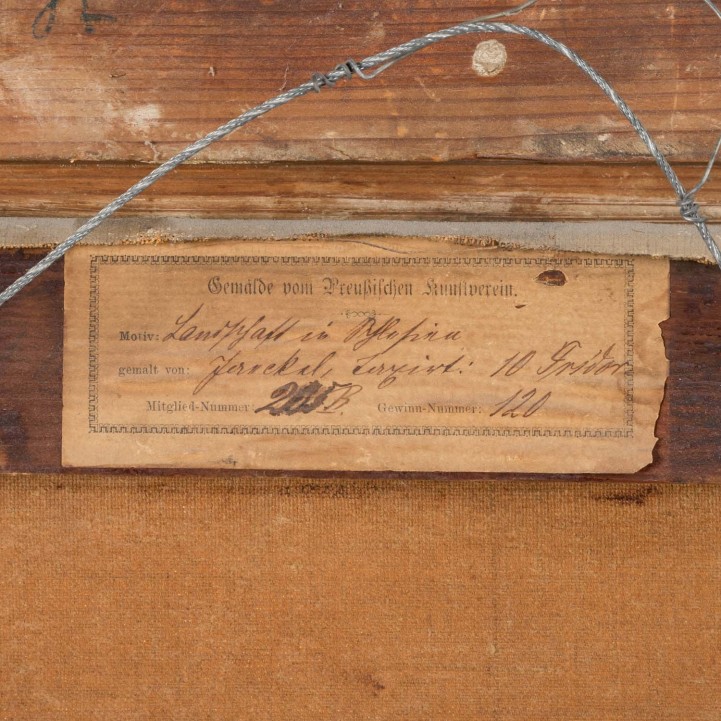 Gemälde vom Preußischen Kunstverein.
Motiv: Landschaft in Schlesien
gemalt von: Jaeckel, taxirt: 10 Frdor
Mitglied-Nummer: B. Gewinn-Nummer: 120